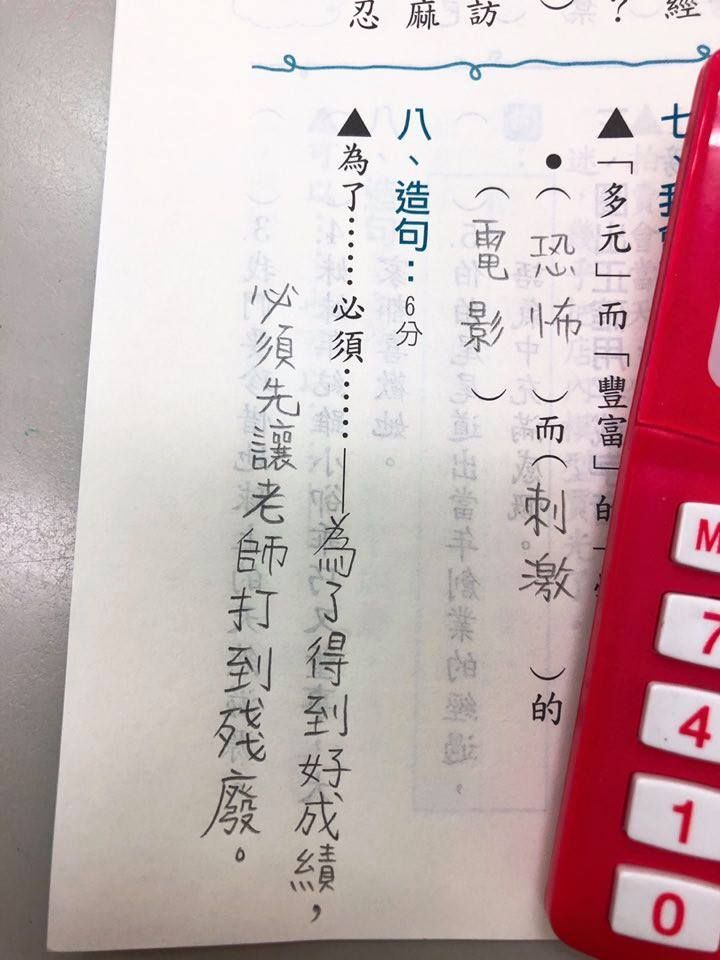 經
？
）
訪
麻
忍
七、
▲「多元」而「豐富」的「
●（恐怖）而（刺激）的
（電影）
八、造句：6分
▲為了……必須……——為了得到好成績，
必須先讓老師打到殘廢。
M
7
4
1
0